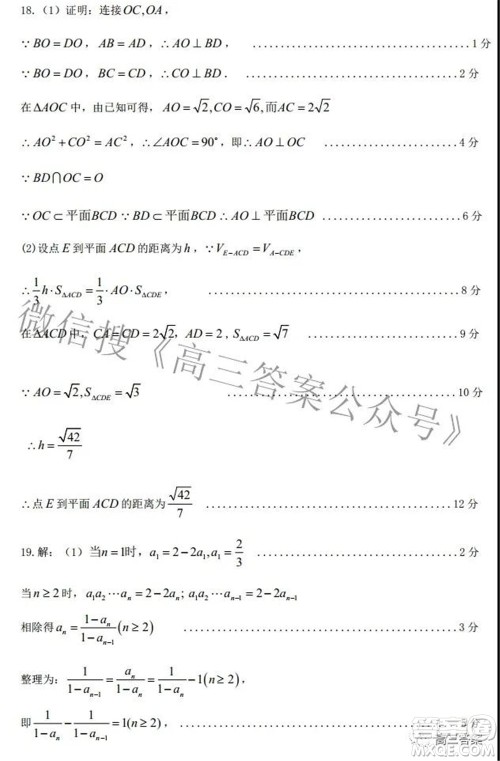 18.（1）证明：连接OC,OA，
∵BO=DO，AB=AD，∴AO⊥BD， ………………1分
∵BO=DO，BC=CD，∴CO⊥BD． ………………2分
在ΔAOC中，由已知可得，AO=√2,CO=√6,而AC=2√2
∴AO²+CO²=AC²，∴∠AOC=90°，即∴AO⊥OC ………………4分
∵BD∩OC=O
∵OC⊂平面BCD ∵BD⊂平面BCD ∴AO⊥平面BCD ………………6分
(2)设点E到平面ACD的距离为h，∵V_{E-ACD}=V_{A-CDE}，
∴1/3 h·S_{ΔACD}=1/3·AO·S_{ΔCDE}， ………………8分
在ΔACD中，CA=CD=2√2，AD=2，S_{ΔACD}=√7 ………………9分
∵AO=√2,S_{ΔCDE}=√3 ………………10分
∴h=√42/7
∴点E到平面ACD的距离为√42/7 ………………12分
19.解：（1）当n=1时，a₁=2-2a₁,a₁=2/3 ………………2分
当n≥2时，a₁a₂⋯aₙ=2-2aₙ; a₁a₂⋯a_{n-1}=2-2a_{n-1}
相除得aₙ=(1-aₙ)/(1-a_{n-1})(n≥2) ………………3分
整理为：1/(1-a_{n-1})=aₙ/(1-aₙ)=1/(1-aₙ)-1(n≥2)，
即1/(1-aₙ)-1/(1-a_{n-1})=1(n≥2)， ………………5分
微信搜《高三答案公众号》
高三答案